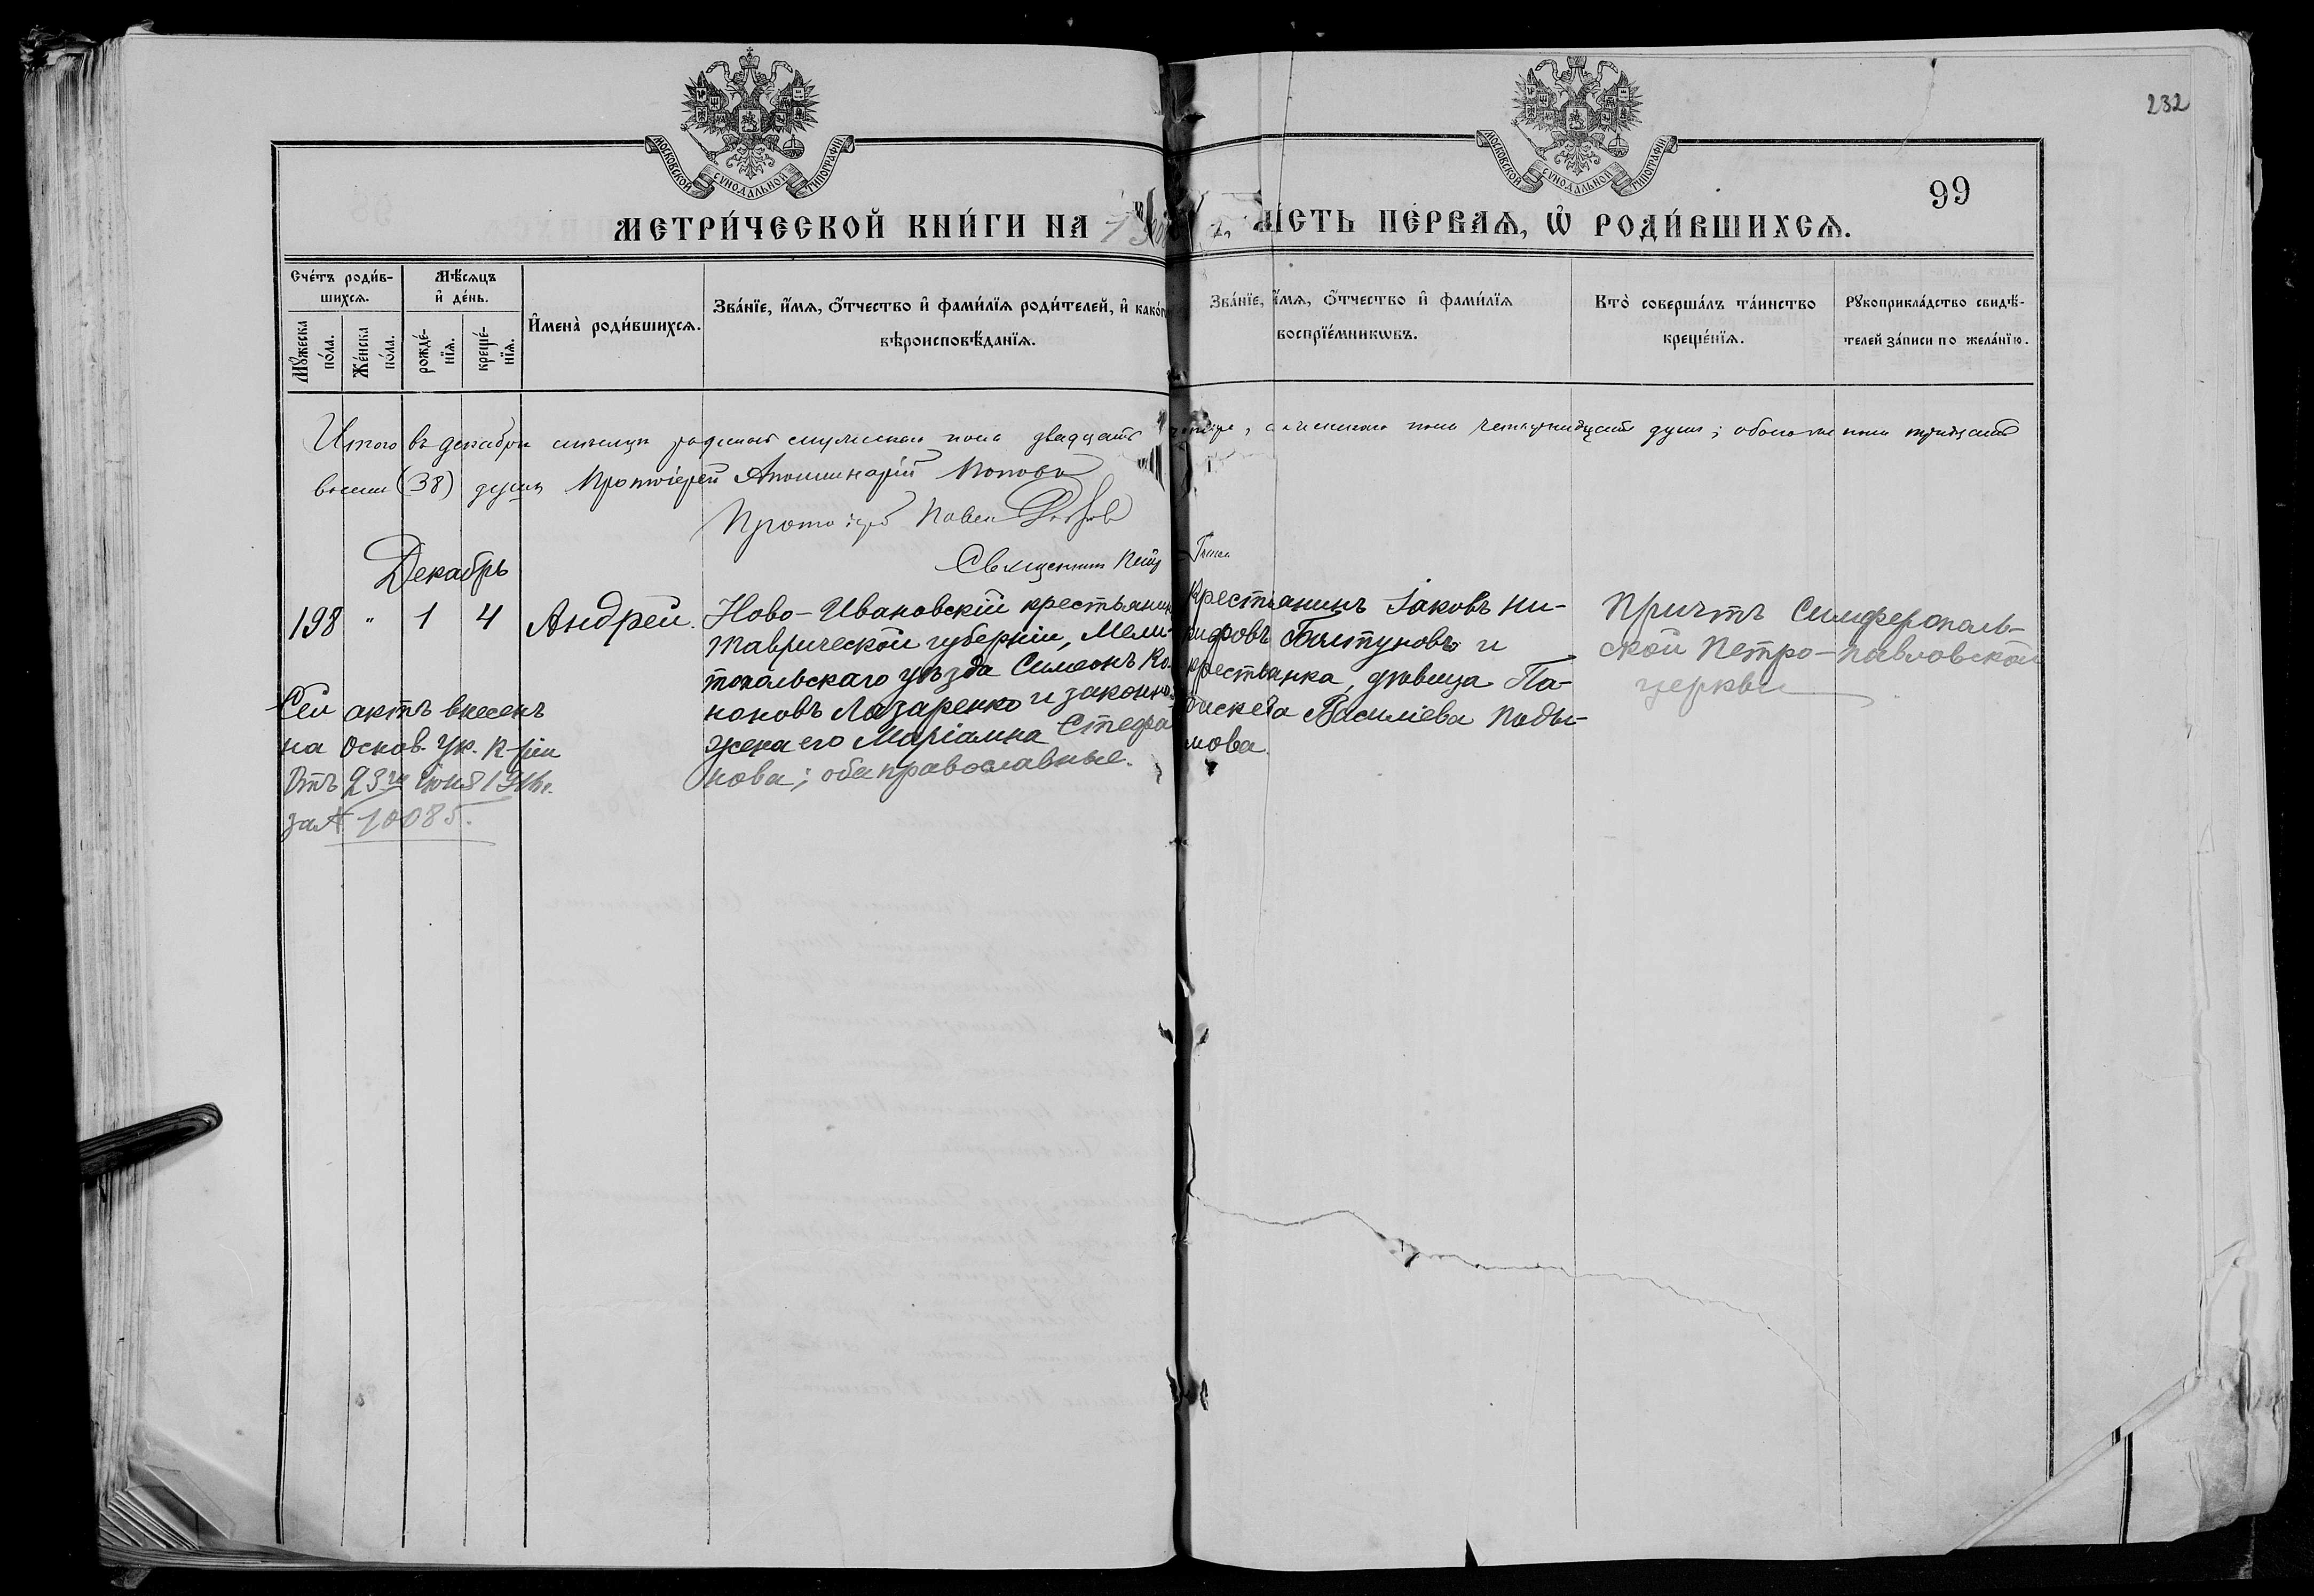 232
МОСКОВСКОЙ СѴНОДАЛЬНОЙ ТИПОГРАФІИ
МОСКОВСКОЙ СѴНОДАЛЬНОЙ ТИПОГРАФІИ
99
МЕТРИ́ЧЕСКОЙ КНИ́ГИ НА
ЧА́СТЬ ПЕ́РВАЯ, Ѡ҆ РОДИ́ВШИХСЯ.
Сче́тъ роди́в-
шихся.
Мꙋ́жеска по́ла.
Же́нска по́ла.
Мѣ́сяцъ
и҆ де́нь.
рожде́-
нїя.
креще́-
нїя.
И҆мена̀ роди́вшихся.
Зва́нїе, и҆́мя, ѻ҆́тчество и҆ фами́лїя роди́телей, и҆ како́гѡ
вѣроисповѣ́данїя.
Зва́нїе, и҆́мя, ѻ҆́тчество и҆ фами́лїя
воспрїе́мникѡвъ.
Кто̀ соверша́лъ та́инство
креще́нїя.
Рꙋкоприкла́дство свидѣ́-
телей за́писи по жела́нїю.
Итого въ декабрѣ мѣсяцѣ родилось мужескаго пола двадцать четыре, а женскаго пола четырнадцать душъ; обоего же пола тридцать
восемь (38) душъ Протоіерей Аполлинарій Поповъ
Протоіерей Павелъ
Священникъ Петръ
Декабрь
198 " 1 4 Андрей.
Ново-Ивановскій крестьянинъ
Таврической губерніи, Мели-
топольскаго уѣзда Симеонъ Ко-
ноновъ Лазаренко и законная
жена его Маріамна Стефа-
нова; оба православные.
Крестьянинъ Іаковъ Ни-
кифоровъ Балтуновъ и
крестьянка, дѣвица Па-
раскева Васильева Поды-
мова.
Причтъ Симферополь-
ской Петро-Павловской
церкви
Сей актъ внесенъ
на основ. Ук. К-ріи
отъ 23го Іюня 1916г.
за № 10085.